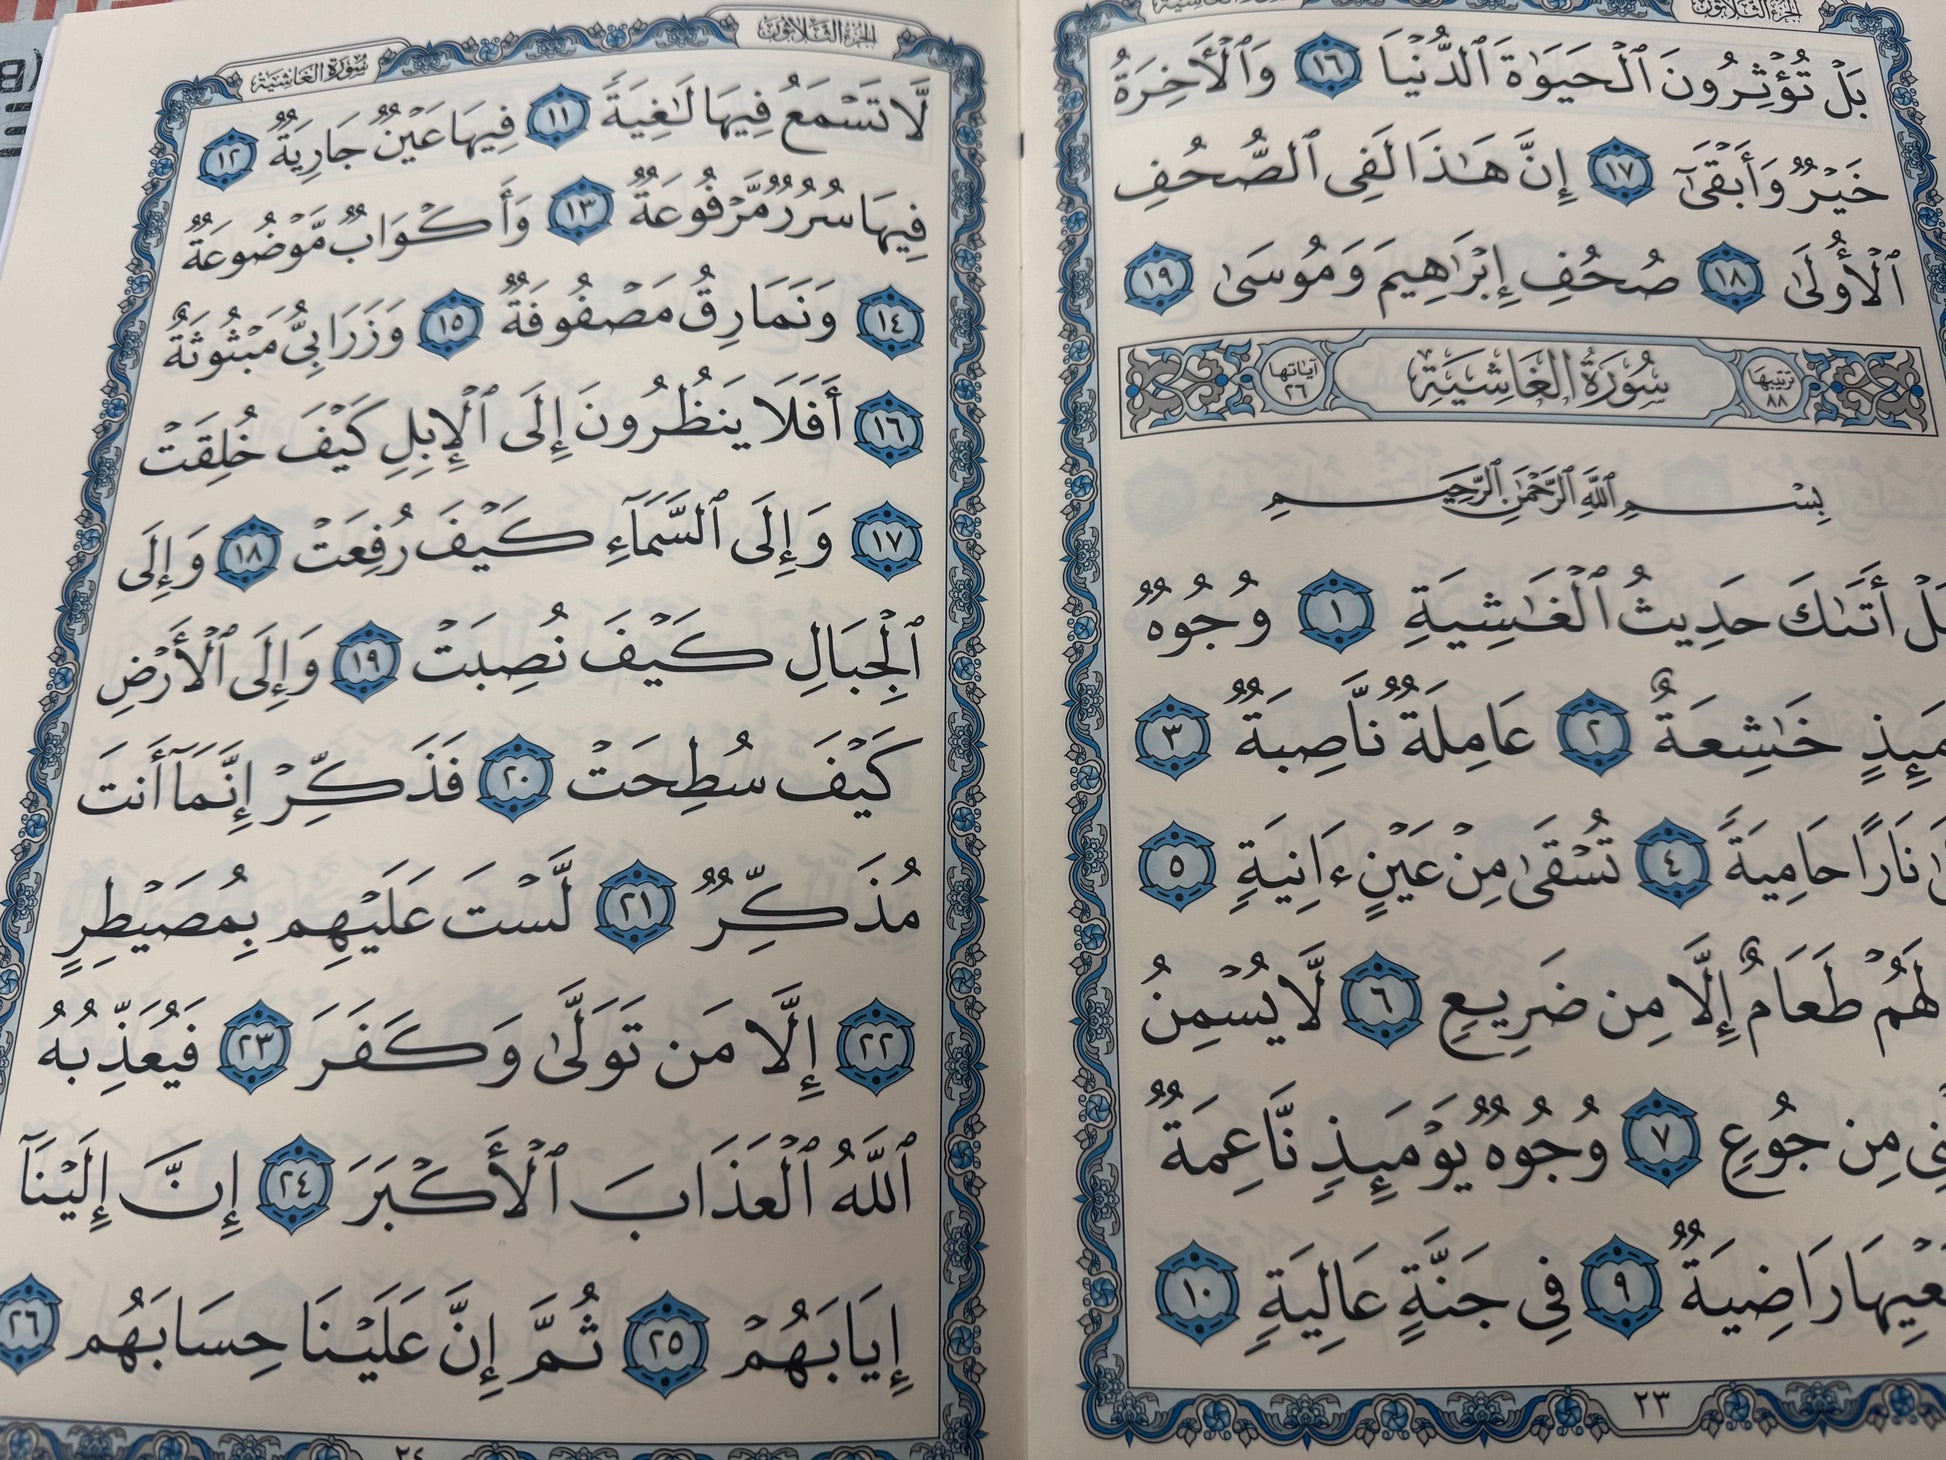 الجزء الثلاثون
بَلْ تُؤْثِرُونَ ٱلْحَيَوٰةَ ٱلدُّنْيَا ١٦ وَٱلْأَخِرَةُ
خَيْرٌ وَأَبْقَىٰٓ ١٧ إِنَّ هَٰذَا لَفِى ٱلصُّحُفِ
ٱلْأُولَىٰ ١٨ صُحُفِ إِبْرَٰهِيمَ وَمُوسَىٰ ١٩
ترتيبها ٨٨ سُورَةُ الغَاشِيَةِ آياتها ٢٦
بِسْمِ ٱللَّهِ ٱلرَّحْمَٰنِ ٱلرَّحِيمِ
أَتَىٰكَ حَدِيثُ ٱلْغَٰشِيَةِ ١ وُجُوهٌ
خَٰشِعَةٌ ٢ عَامِلَةٌ نَّاصِبَةٌ ٣
نَارًا حَامِيَةً ٤ تُسْقَىٰ مِنْ عَيْنٍ ءَانِيَةٍ ٥
لَهُمْ طَعَامٌ إِلَّا مِن ضَرِيعٍ ٦ لَّا يُسْمِنُ
مِن جُوعٍ ٧ وُجُوهٌ يَوْمَئِذٍ نَّاعِمَةٌ
رَاضِيَةٌ ٩ فِى جَنَّةٍ عَالِيَةٍ ١٠
٢٣
الجزء الثلاثون
سورة الغاشية
لَّا تَسْمَعُ فِيهَا لَٰغِيَةً ١١ فِيهَا عَيْنٌ جَارِيَةٌ ١٢
فِيهَا سُرُرٌ مَّرْفُوعَةٌ ١٣ وَأَكْوَابٌ مَّوْضُوعَةٌ
١٤ وَنَمَارِقُ مَصْفُوفَةٌ ١٥ وَزَرَابِىُّ مَبْثُوثَةٌ
١٦ أَفَلَا يَنظُرُونَ إِلَى ٱلْإِبِلِ كَيْفَ خُلِقَتْ
١٧ وَإِلَى ٱلسَّمَآءِ كَيْفَ رُفِعَتْ ١٨ وَإِلَى
ٱلْجِبَالِ كَيْفَ نُصِبَتْ ١٩ وَإِلَى ٱلْأَرْضِ
كَيْفَ سُطِحَتْ ٢٠ فَذَكِّرْ إِنَّمَآ أَنتَ
مُذَكِّرٌ ٢١ لَّسْتَ عَلَيْهِم بِمُصَيْطِرٍ
٢٢ إِلَّا مَن تَوَلَّىٰ وَكَفَرَ ٢٣ فَيُعَذِّبُهُ
ٱللَّهُ ٱلْعَذَابَ ٱلْأَكْبَرَ ٢٤ إِنَّ إِلَيْنَآ
إِيَابَهُمْ ٢٥ ثُمَّ إِنَّ عَلَيْنَا حِسَابَهُم ٢٦
٢٤